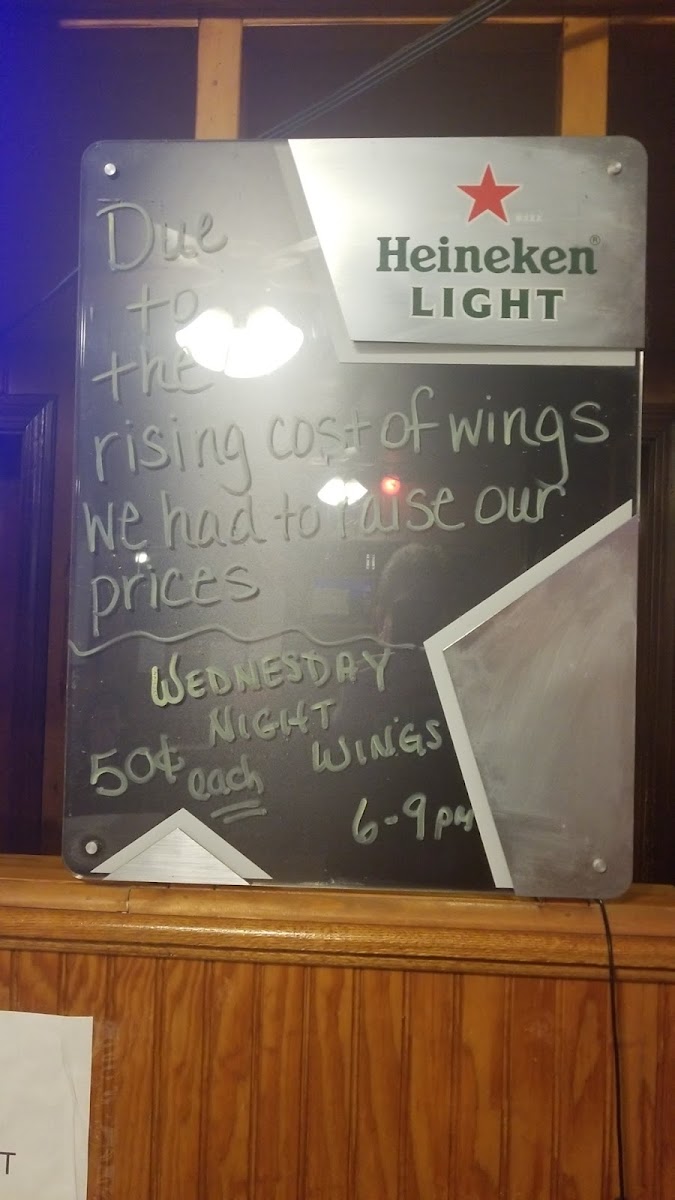 Heineken®
LIGHT
Due
to
the
rising cost of wings
we had to raise our
prices
WEDNESDAY
NIGHT
50¢ each WINGS
6-9pm
T